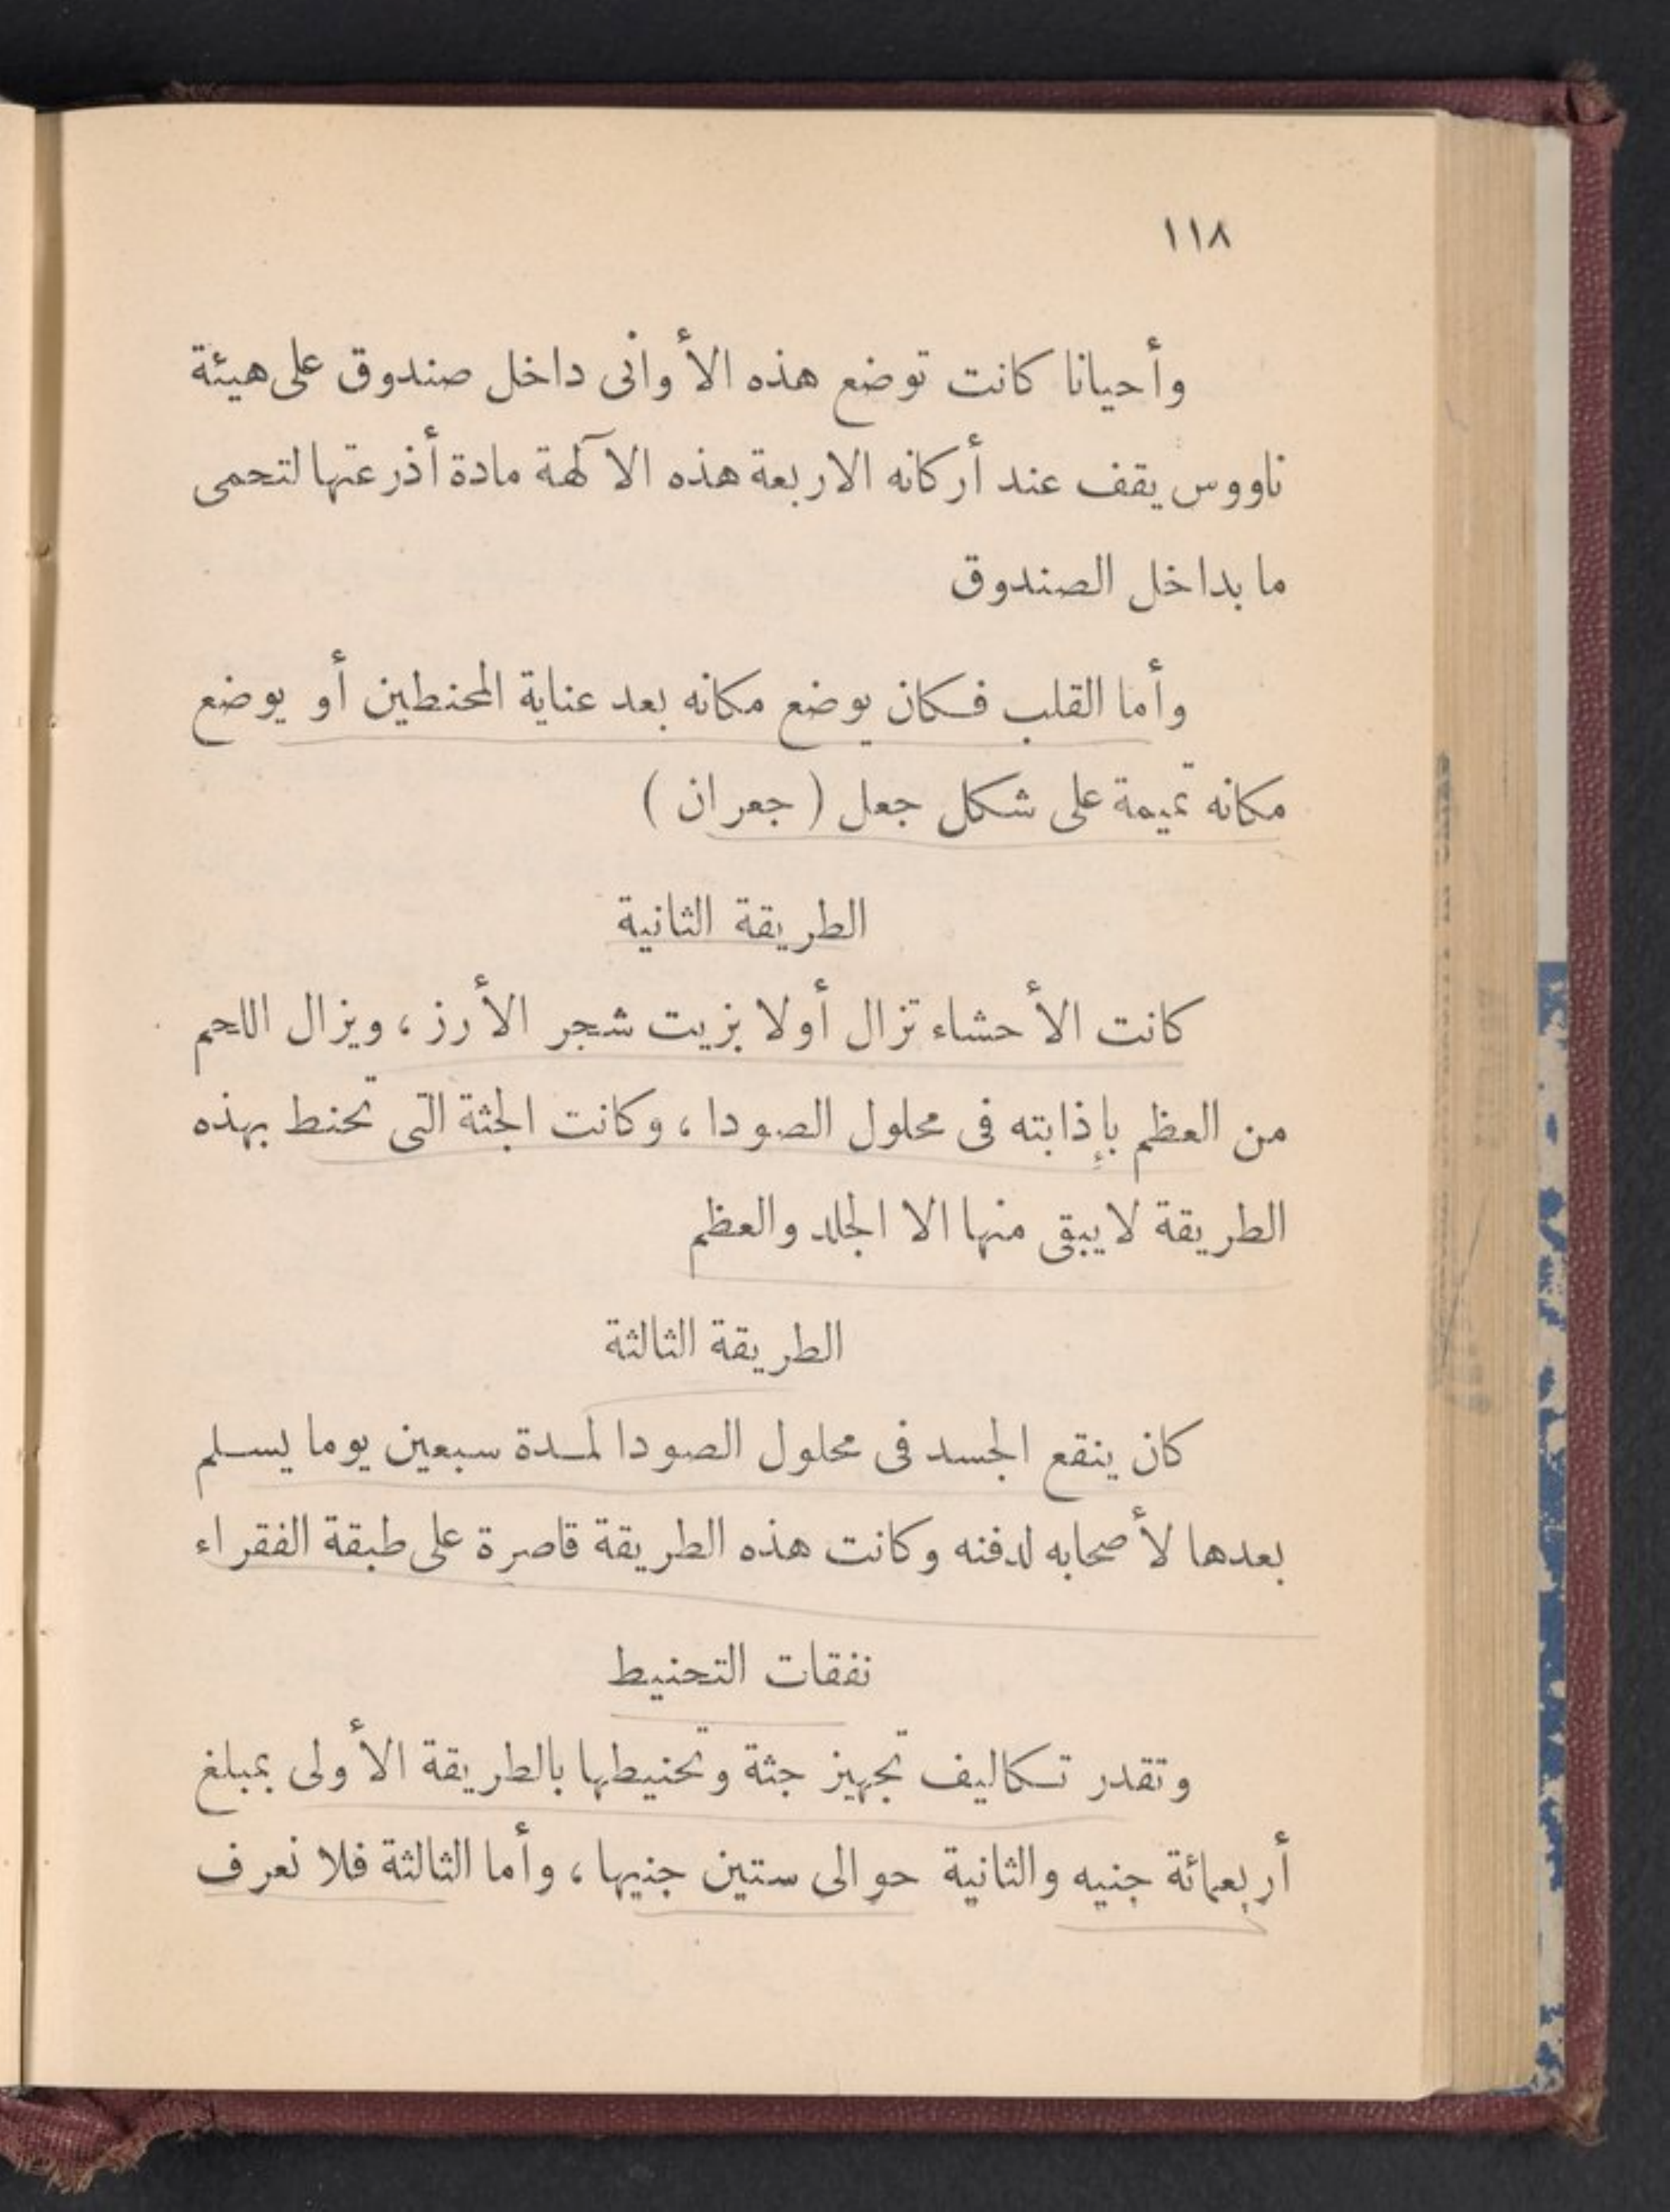 ١١٨
وأحيانا كانت توضع هذه الأوانى داخل صندوق على هيئة
ناووس يقف عند أركانه الاربعة هذه الآلهة مادة أذرعتها لتحمى
ما بداخل الصندوق
وأما القلب فكان يوضع مكانه بعد عناية المحنطين أو يوضع
مكانه تميمة على شكل جعل ( جعران )
الطريقة الثانية
كانت الأحشاء تزال أولا بزيت شجر الأرز ، ويزال اللحم
من العظم بإذابته فى محلول الصودا ، وكانت الجثة التى تحنط بهذه
الطريقة لا يبقى منها الا الجلد والعظم
الطريقة الثالثة
كان ينقع الجسد فى محلول الصودا لمدة سبعين يوما يسلم
بعدها لأصحابه لدفنه وكانت هذه الطريقة قاصرة على طبقة الفقراء
نفقات التحنيط
وتقدر تكاليف تجهيز جثة وتحنيطها بالطريقة الأولى بمبلغ
أربعمائة جنيه والثانية حوالى ستين جنيها ، وأما الثالثة فلا نعرف